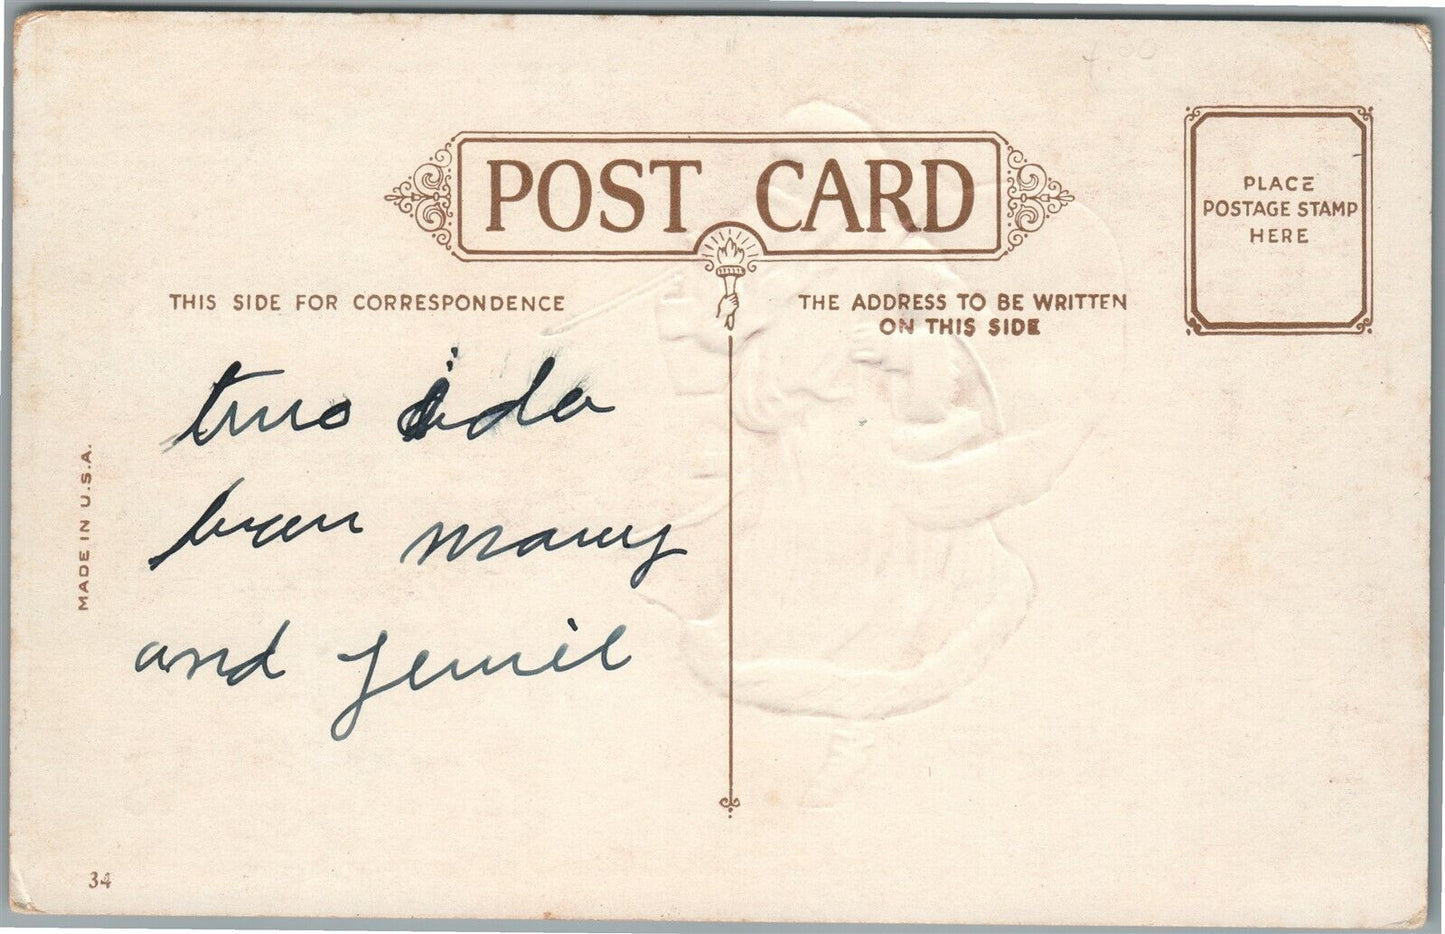 4.00
POST CARD
PLACE
POSTAGE STAMP
HERE
THIS SIDE FOR CORRESPONDENCE
THE ADDRESS TO BE WRITTEN
ON THIS SIDE
ida
and
MADE IN U.S.A.
34